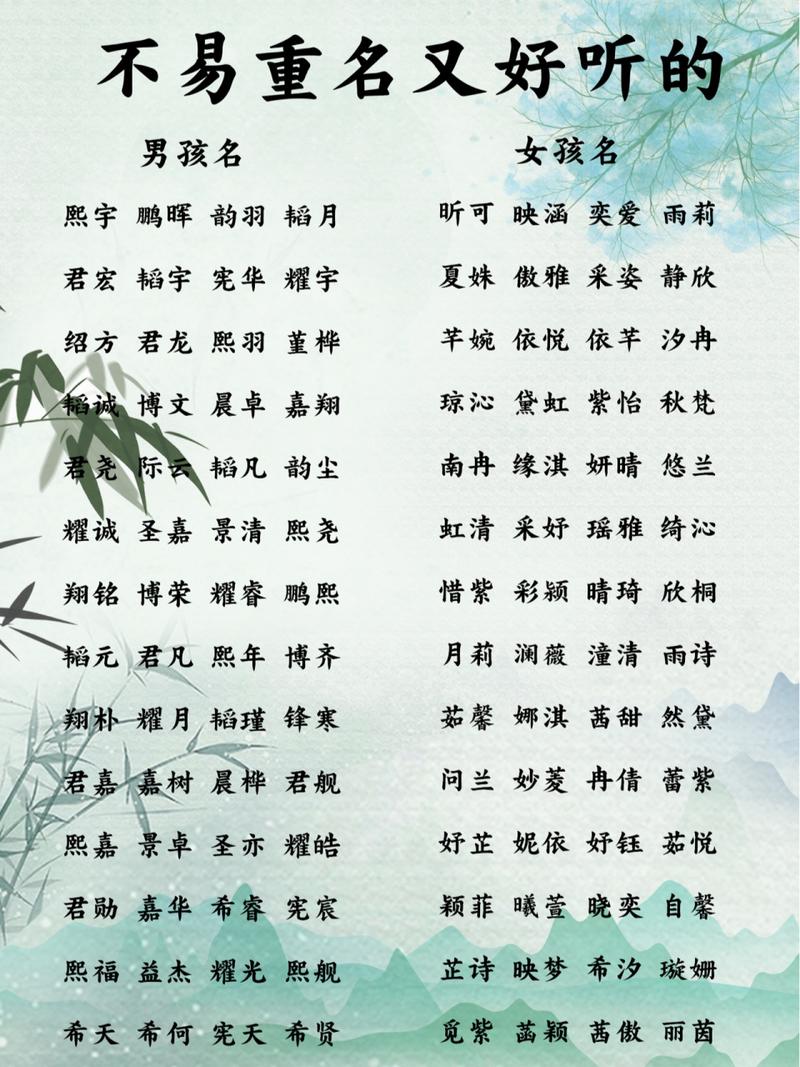 不易重名又好听的
男孩名
熙宇 鹏晖 韵羽 韬月
君宏 韬宇 宪华 耀宇
绍方 君龙 熙羽 堇桦
韬诚 博文 晨卓 嘉翔
君尧 际云 韬凡 韵尘
耀诚 圣嘉 景清 熙尧
翔铭 博荣 耀睿 鹏熙
韬元 君凡 熙年 博齐
翔朴 耀月 韬瑾 锋寒
君嘉 嘉树 晨桦 君舰
熙嘉 景卓 圣亦 耀皓
君勋 嘉华 希睿 宪宸
熙福 益杰 耀光 熙舰
希天 希何 宪天 希贤
女孩名
昕可 映涵 奕爱 雨莉
夏姝 傲雅 采姿 静欣
芊婉 依悦 依芊 汐冉
琼沁 黛虹 紫怡 秋梵
南冉 缘淇 妍晴 悠兰
虹清 采妤 瑶雅 绮沁
惜紫 彩颍 晴琦 欣桐
月莉 澜薇 潼清 雨诗
茹馨 娜淇 茜甜 然黛
问兰 妙菱 冉倩 蕾紫
妤芷 妮依 妤钰 茹悦
颖菲 曦萱 晓奕 自馨
芷诗 映梦 希汐 璇姗
觅紫 菡颖 茜傲 丽茵